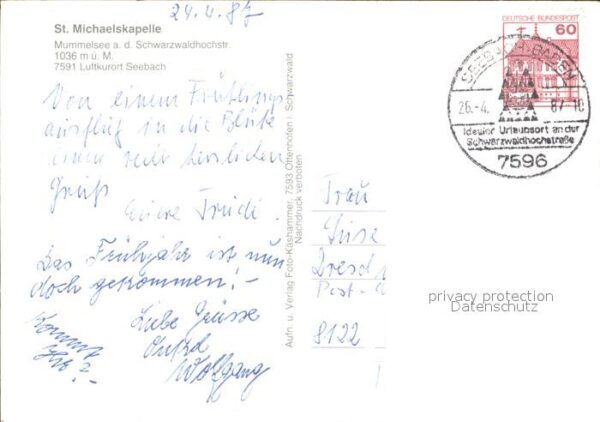 24.4.87
St. Michaelskapelle
Mummelsee a. d. Schwarzwaldhochstr.
1036 m ü. M.
7591 Luftkurort Seebach
Von einem Frühlings
ausflug in die Blüte
einen recht herzlichen
Gruß
Eure Trudi.
Das Frühjahr ist nun
doch gekommen! –
Liebe Grüsse
Wolfgang
Kommt
Ihr?
Aufn. u. Verlag Foto-Kashammer, 7593 Ottenhöfen i. Schwarzwald
Nachdruck verboten
DEUTSCHE BUNDESPOST
60
SEEBACH, BADEN
26.-4. 87-10
Idealer Urlaubsort an der
Schwarzwaldhochstraße
7596
Frau
Dresd
Post-
8122
privacy protection
Datenschutz